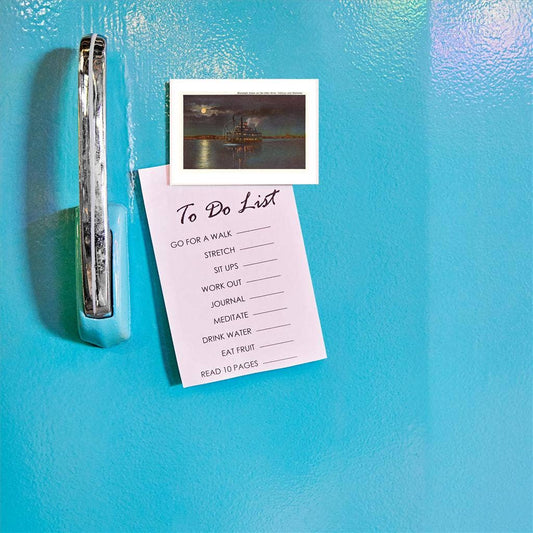 To Do List
GO FOR A WALK
STRETCH
SIT UPS
WORK OUT
JOURNAL
MEDITATE
DRINK WATER
EAT FRUIT
READ 10 PAGES